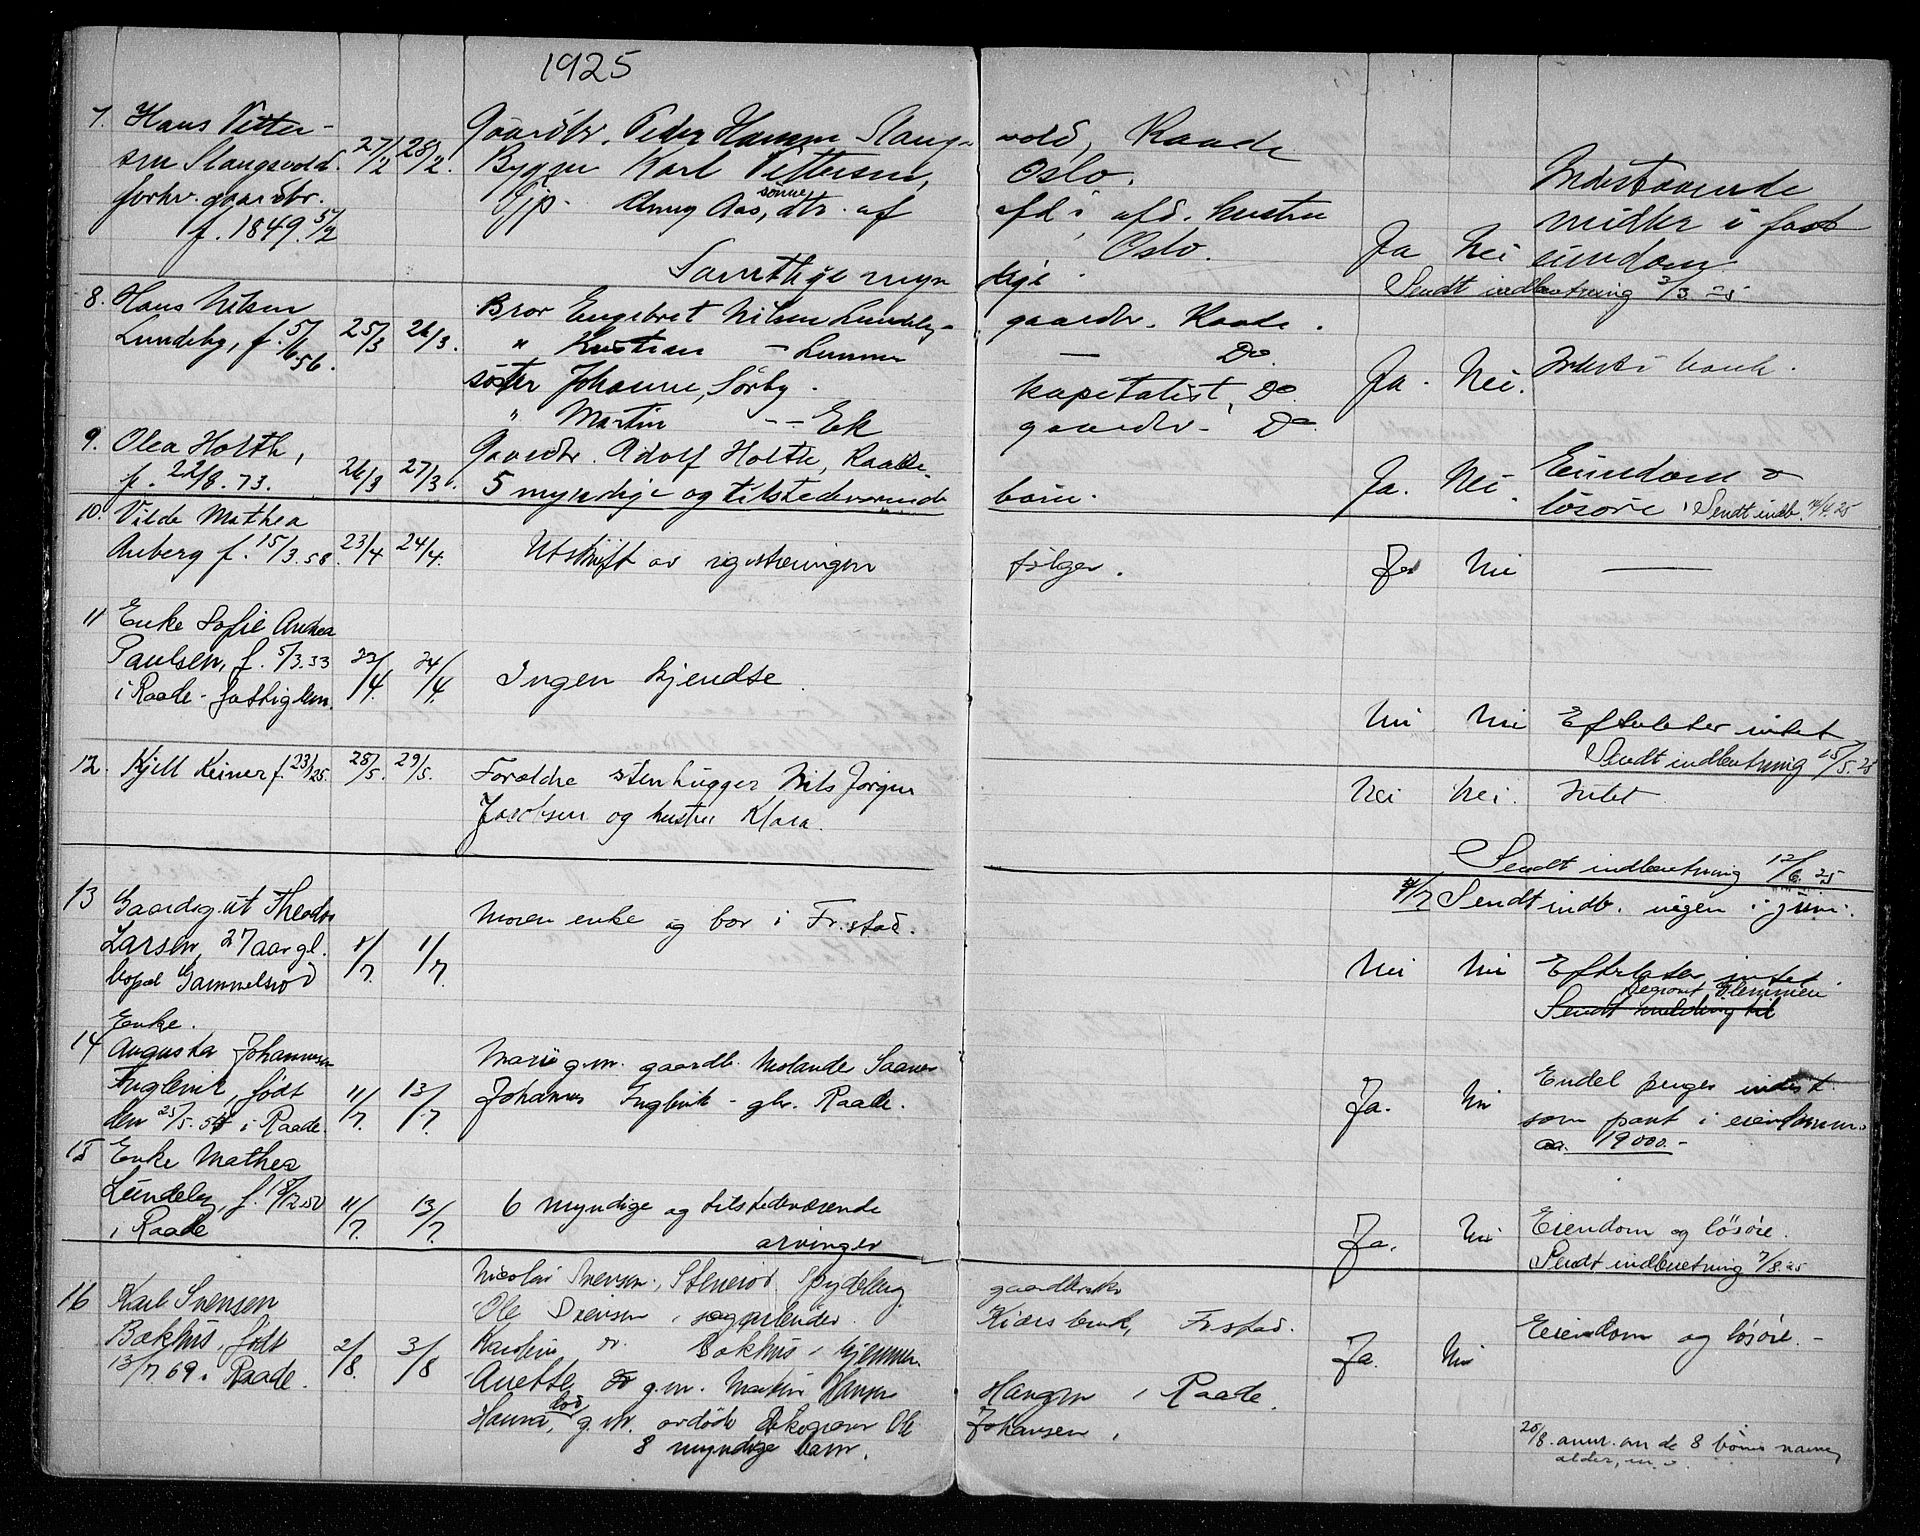 1925
7. Hans Petter- 27/2 28/2. Gaardbr. Peder Hansen Slangs- vold, Raade
sen Slangsvold. Bygm Karl Pettersen, Oslo. Indestaaende
forhv. gaardbr. Gjp. Anny Aas, sønne dtr. af afd i afd. hustru midler i fast
f. 1849. 5/2 Oslo. Ja Nei eiendom.
Samtlige myn dige. Sendt indberetning 3/3 25
8. Hans Nilsen Bror Engebret Nilsen Lundeby- gaardbr. Raade.
Lundeby, f. 5/6.56. 25/3 26/3. " Kristian - Lunne — Do.
søster Johanne, Sørby. kapitalist, Do. Ja. Nei. Indest i bank.
" Martin -- Ek gaardbr - Do
9. Olea Holth, Gaardbr. Adolf Holth, Raade.
f. 22/8. 73. 26/3 27/3. 5 myndige og tilstedeværende barn. Ja. Nei. Eiendom &
løsøre. Sendt indb. 25
10. Vilde Mathea
Auberg f. 15/3.58. 23/4 24/4. Utskrift av registreringen følger. Ja Nei —
11 Enke Sofie Andrea
Paulsen, f. 5/3.33 22/4. 24/4. Ingen kjendte.
i Raade - fattiglem.
Nei Nei Efterlater intet
Sendt indberetning 15/5. 25
12. Kjell Reiner f. 23/ 25. 28/5. 29/5. Forældre stenhugger Nils Jørgen
Jacobsen og hustru Klara. Nei Nei. Intet
Sendt indberetning 12/6. 25
Sendt indb. ingen i juni.
13 Gaardsgut Theodor Moren enke og bor i Fr.stad.
Larsen, 27 aar gl. 1/7. 1/7.
bopæl Gammelsrød Nei Nei Efterlater intet
Begravet Glemmen
Sendt melding til
Enke.
14 Augusta Johannesen Marie g.m. gaardb.
Fuglevik, født 11/7. 13/7. Johannes Fuglevik - gbr. Raade. Ja. Nei Endel penger indest.
den 25/5. i Raade. som pant i eiendommen
ca. 19000.-
15 Enke Mathea
Lundeby, f. 18/12.50 11/7. 13/7. 6 myndige og tilstedeværende Ja. Nei Eiendom og løsøre.
i Raade arvinger Sendt indberetning 7/8.25
16 Karl Svensen Nicolai Svensen, Stenerød Spydeberg gaardbruker
Bakhus, født 2/8. 3/8 Ole Svensen, sagarbeider. Kiærs bruk, Fr.stad.
13/7 69 i Raade. Karoline Do. Bakhus, hjemme Ja. Nei Eiendom og løsøre. -
Anette Do g.m. Martin Hansen Haugen i Raade.
Hanna, død g.m. avdøde Ole Johansen,
8 myndige barn. 20/8. anm. om de 8 børns navne,
alder, m.v.